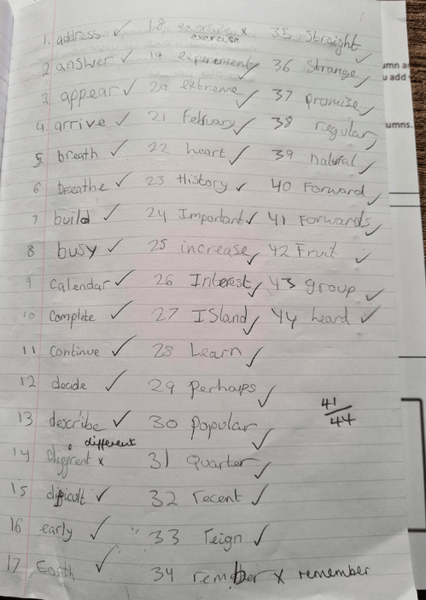 1. address ✓
2 answer ✓
3 appear ✓
4 arrive ✓
5 breath ✓
6 breathe ✓
7 build ✓
8 busy ✓
9 calendar ✓
10 complete ✓
11 continue ✓
12 decide ✓
13 describe ✓
different
14 x
15 difficult ✓
16 early ✓
17 Earth ✓
18 x
exercise
19 experement ✓
20 extreme ✓
21 February ✓
22 heart ✓
23 History ✓
24 Important ✓
25 increase ✓
26 Interest ✓
27 ISland ✓
28 Learn ✓
29 perhaps ✓
30 Popular ✓
31 Quarter ✓
32 recent ✓
33 reign ✓
34 x remember
35 Straight ✓
36 Strange ✓
37 promise ✓
38 regular ✓
39 natural ✓
40 Forward ✓
41 Forwards ✓
42 Fruit ✓
43 group ✓
44 heard ✓
41
44
umn a
u add
umns.